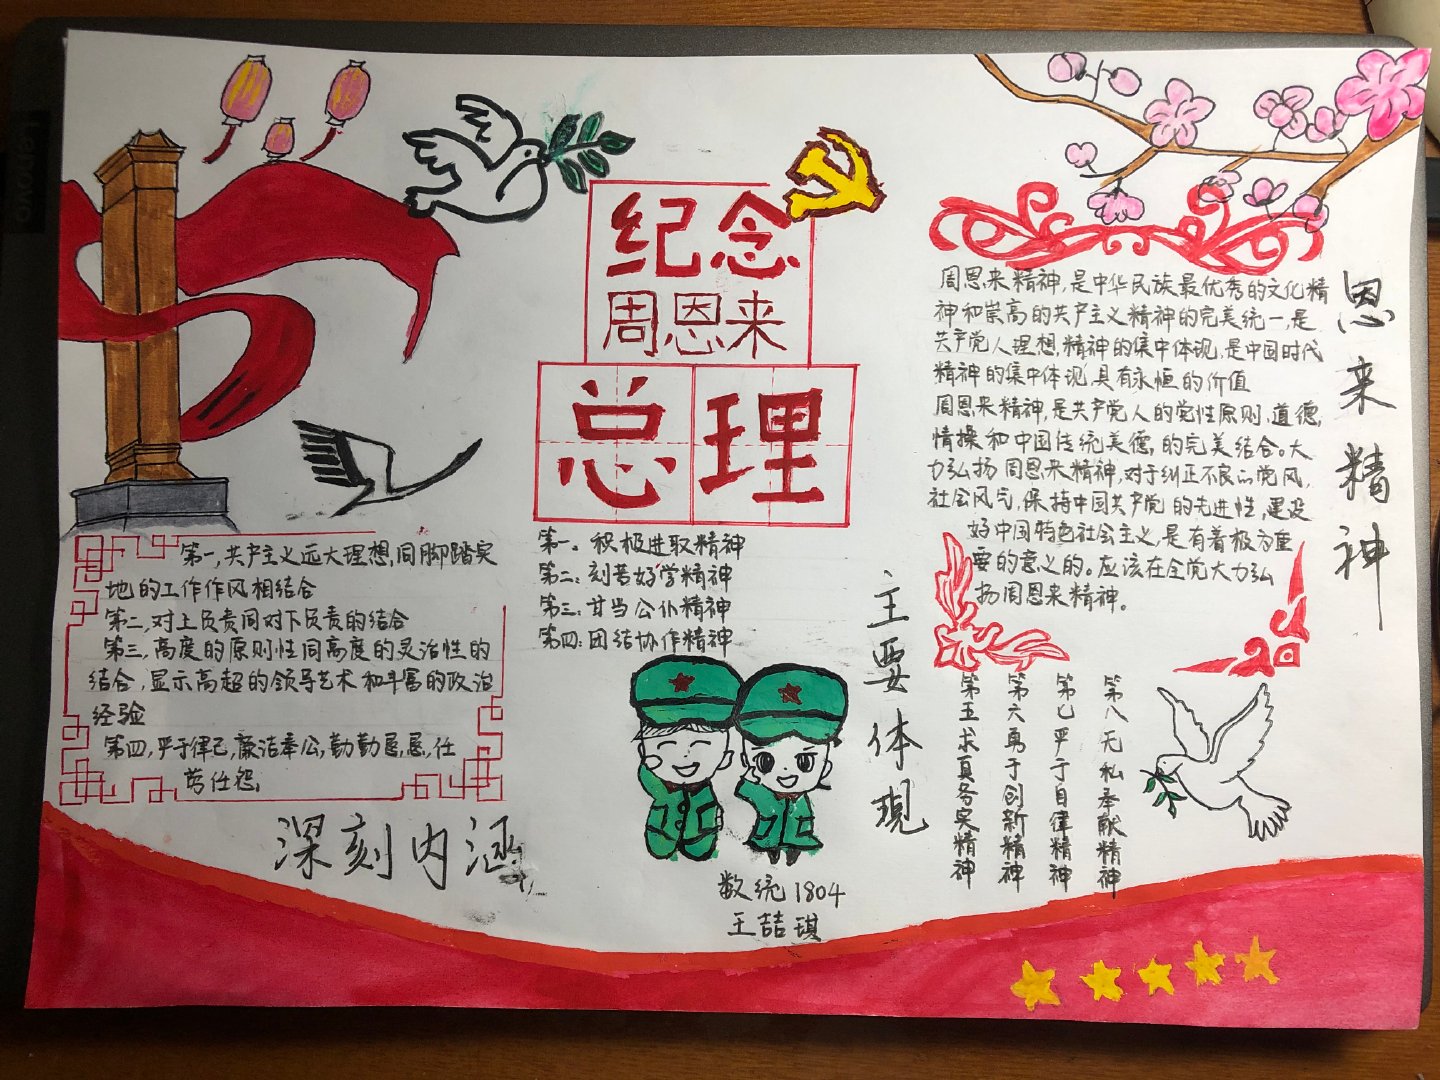 纪念
周恩来
总理
第一,共产主义远大理想,同脚踏实
地的工作作风相结合
第二,对上负责同对下负责的结合
第三,高度的原则性同高度的灵活性的
结合,显示高超的领导艺术和丰富的政治
经验
第四,严于律己,廉洁奉公,勤勤恳恳,任
劳任怨,
深刻内涵
第一。积极进取精神
第二:刻苦好学精神
第三:甘当公仆精神
第四:团结协作精神
主要体现
第五求真务实精神
第六勇于创新精神
第七严于自律精神
第八无私奉献精神
恩来精神
周恩来精神,是中华民族最优秀的文化精
神和崇高的共产主义精神的完美统一,是
共产党人理想,精神的集中体现,是中国时代
精神的集中体现,具有永恒的价值
周恩来精神,是共产党人的党性原则,道德,
情操和中国传统美德,的完美结合。大
力弘扬周恩来精神,对于纠正不良的党风,
社会风气,保持中国共产党的先进性,建设
好中国特色社会主义,是有着极为重
要的意义的。应该在全党大力弘
扬周恩来精神。
数统1804
王喆琪
Lenovo